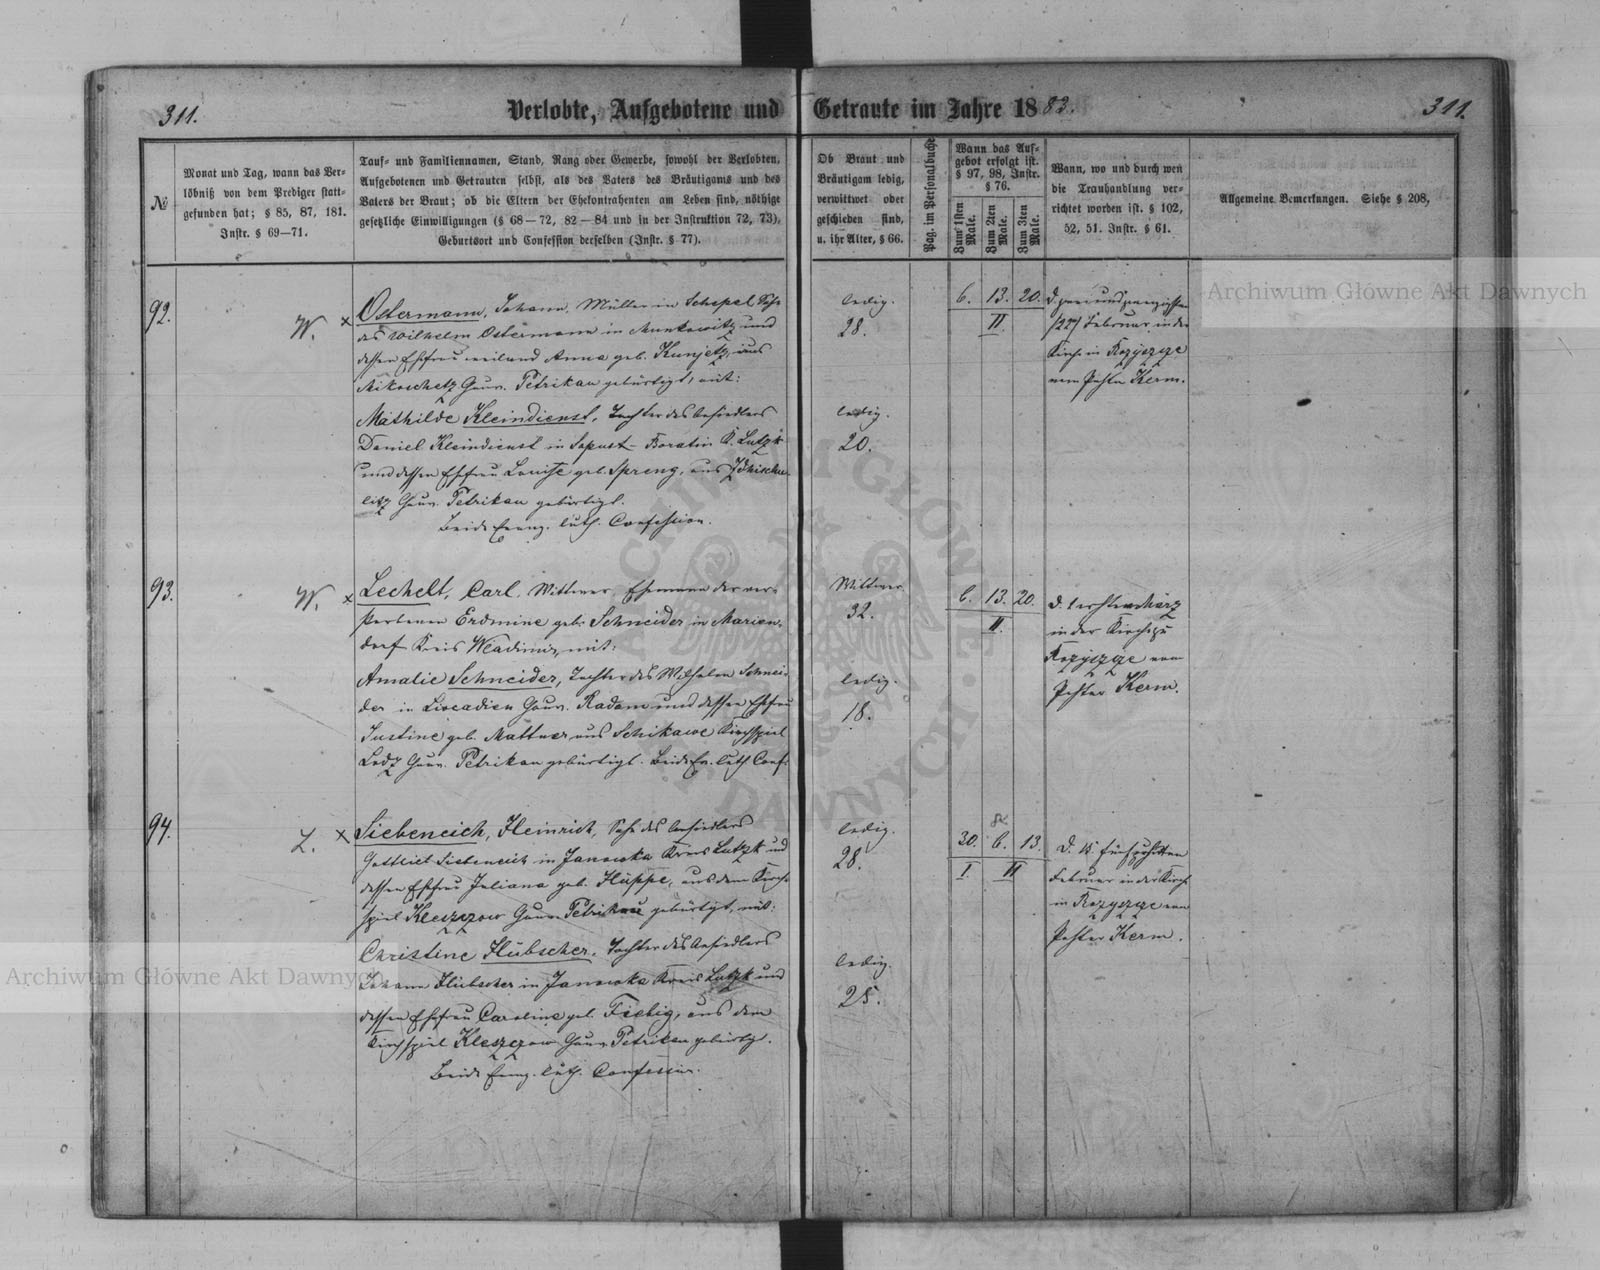 311.
Verlobte, Aufgebotene und Getraute im Jahre 1883.
311.
№
Monat und Tag, wann das Ver-
löbniß von dem Prediger statt-
gefunden hat; § 85, 87, 181.
Instr. § 69—71.
Tauf- und Familiennamen, Stand, Rang oder Gewerbe, sowohl der Verlobten,
Aufgebotenen und Getrauten selbst, als des Vaters des Bräutigams und des
Vaters der Braut; ob die Eltern der Ehekontrahenten am Leben sind, nöthige
gesetzliche Einwilligungen (§ 68—72, 82—84 und in der Instruktion 72, 73),
Geburtsort und Confession derselben (Instr. § 77).
Ob Braut und
Bräutigam ledig,
verwittwet oder
geschieden sind,
u. ihr Alter, § 66.
Pag. im Personalbuche
Wann das Auf-
gebot erfolgt ist.
§ 97, 98, Instr.
§ 76.
Zum 1sten Male.
Zum 2ten Male.
Zum 3ten Male.
Wann, wo und durch wen
die Trauhandlung ver-
richtet worden ist. § 102,
52, 51. Instr. § 61.
Allgemeine Bemerkungen. Siehe § 208,
92.
W. ×
Ostermann, Johann, Müller in Schepel Sohn
des Wilhelm Ostermann in Munkowitz und
dessen Ehefrau weiland Anna geb. Kunjetz, aus
Mikoschetz Gouv. Petrikau gebürtigt, mit:
Mathilde Kleindienst, Tochter des Ansiedlers
Daniel Kleindienst in Sapust-Boratin K. Lutzk
und dessen Ehefrau Louise geb. Spreng, aus
Gouv. Petrikau gebürtigt.
Beide Evang. luth. Confession.
ledig.
28.
ledig.
20.
6. 13. 20.
II.
d. zweiundzwanzigsten
/22/ Februar in der
Kirche in Rozyszcze
vom Pastor Kerm.
93.
W. ×
Lechelt, Carl, Wittwer, Ehemann der ver-
storbenen Erdmine geb. Schneider in Marien-
dorf Kreis Wladimir, mit:
Amalie Schneider, Tochter des Wilhelm Schnei-
der in Liocadien Gouv. Radom und dessen Ehefrau
Justine geb. Mattner aus Schikawe Kirchspiel
Lodz Gouv. Petrikau gebürtigt. Beide Ev. luth Conf.
Wittwer.
32.
ledig.
18.
6. 13. 20.
II.
d. ersten März
in der Kirche zu
Rozyszcze vom
Pastor Kerm.
94.
L. ×
Siebeneich, Heinrich, Sohn des Ansiedlers
Gottlieb Siebeneich in Janowka Kreis Lutzk und
dessen Ehefrau Juliana geb. Hüppe, aus dem Kirch-
spiel Kleszczow Gouv. Petrikau gebürtigt, mit:
Christine Hübscher, Tochter des Ansiedlers
Johann Hübscher in Janowka Kreis Lutzk und
dessen Ehefrau Caroline geb. Fiebig, aus dem
Kirchspiel Kleszczow Gouv. Petrikau gebürtig.
Beide Evang. luth. Confession.
ledig.
28.
ledig.
25.
30. 6. 13.
I II
d. 15 fünfzehnten
Februar in der Kirche
in Rozyszcze vom
Pastor Kerm.
Archiwum Główne Akt Dawnych
Archiwum Główne Akt Dawnych